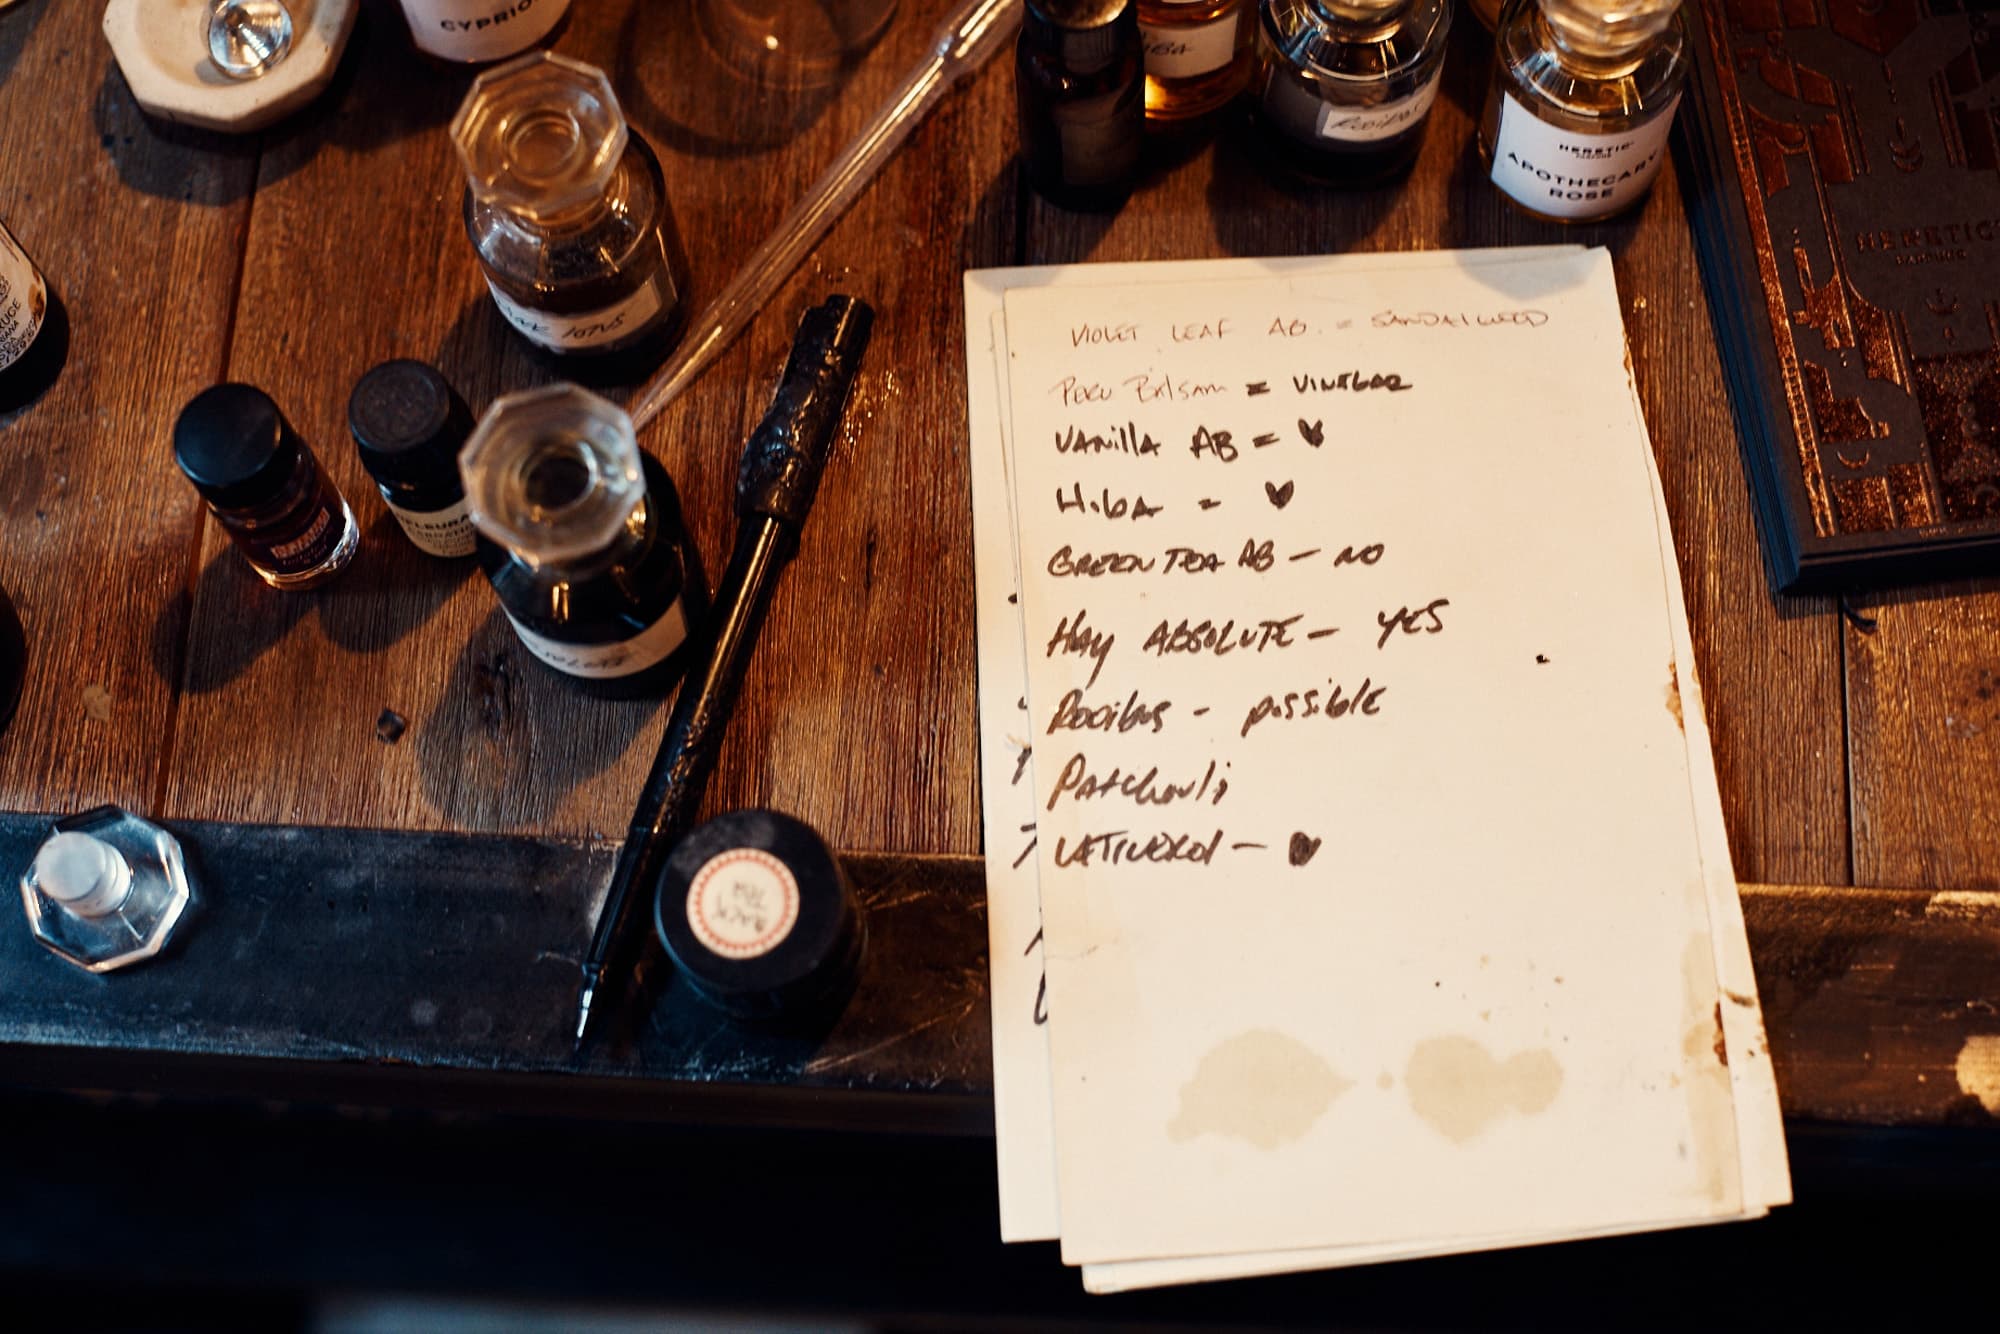 CYPRIO
HIBA
Rooibos
HERETIC
PARFUM
APOTHECARY
ROSE
HERETIC
PARFUM
LOTUS
VIOLET LEAF AB. = SANDALWOOD
PERU BALSAM = VINEGAR
VANILLA AB = ♥
HIBA = ♥
GREEN TEA AB — NO
HAY ABSOLUTE — YES
Rooibos - possible
PATCHOULI
VETIVEROL — ♥
BLACK
TEA